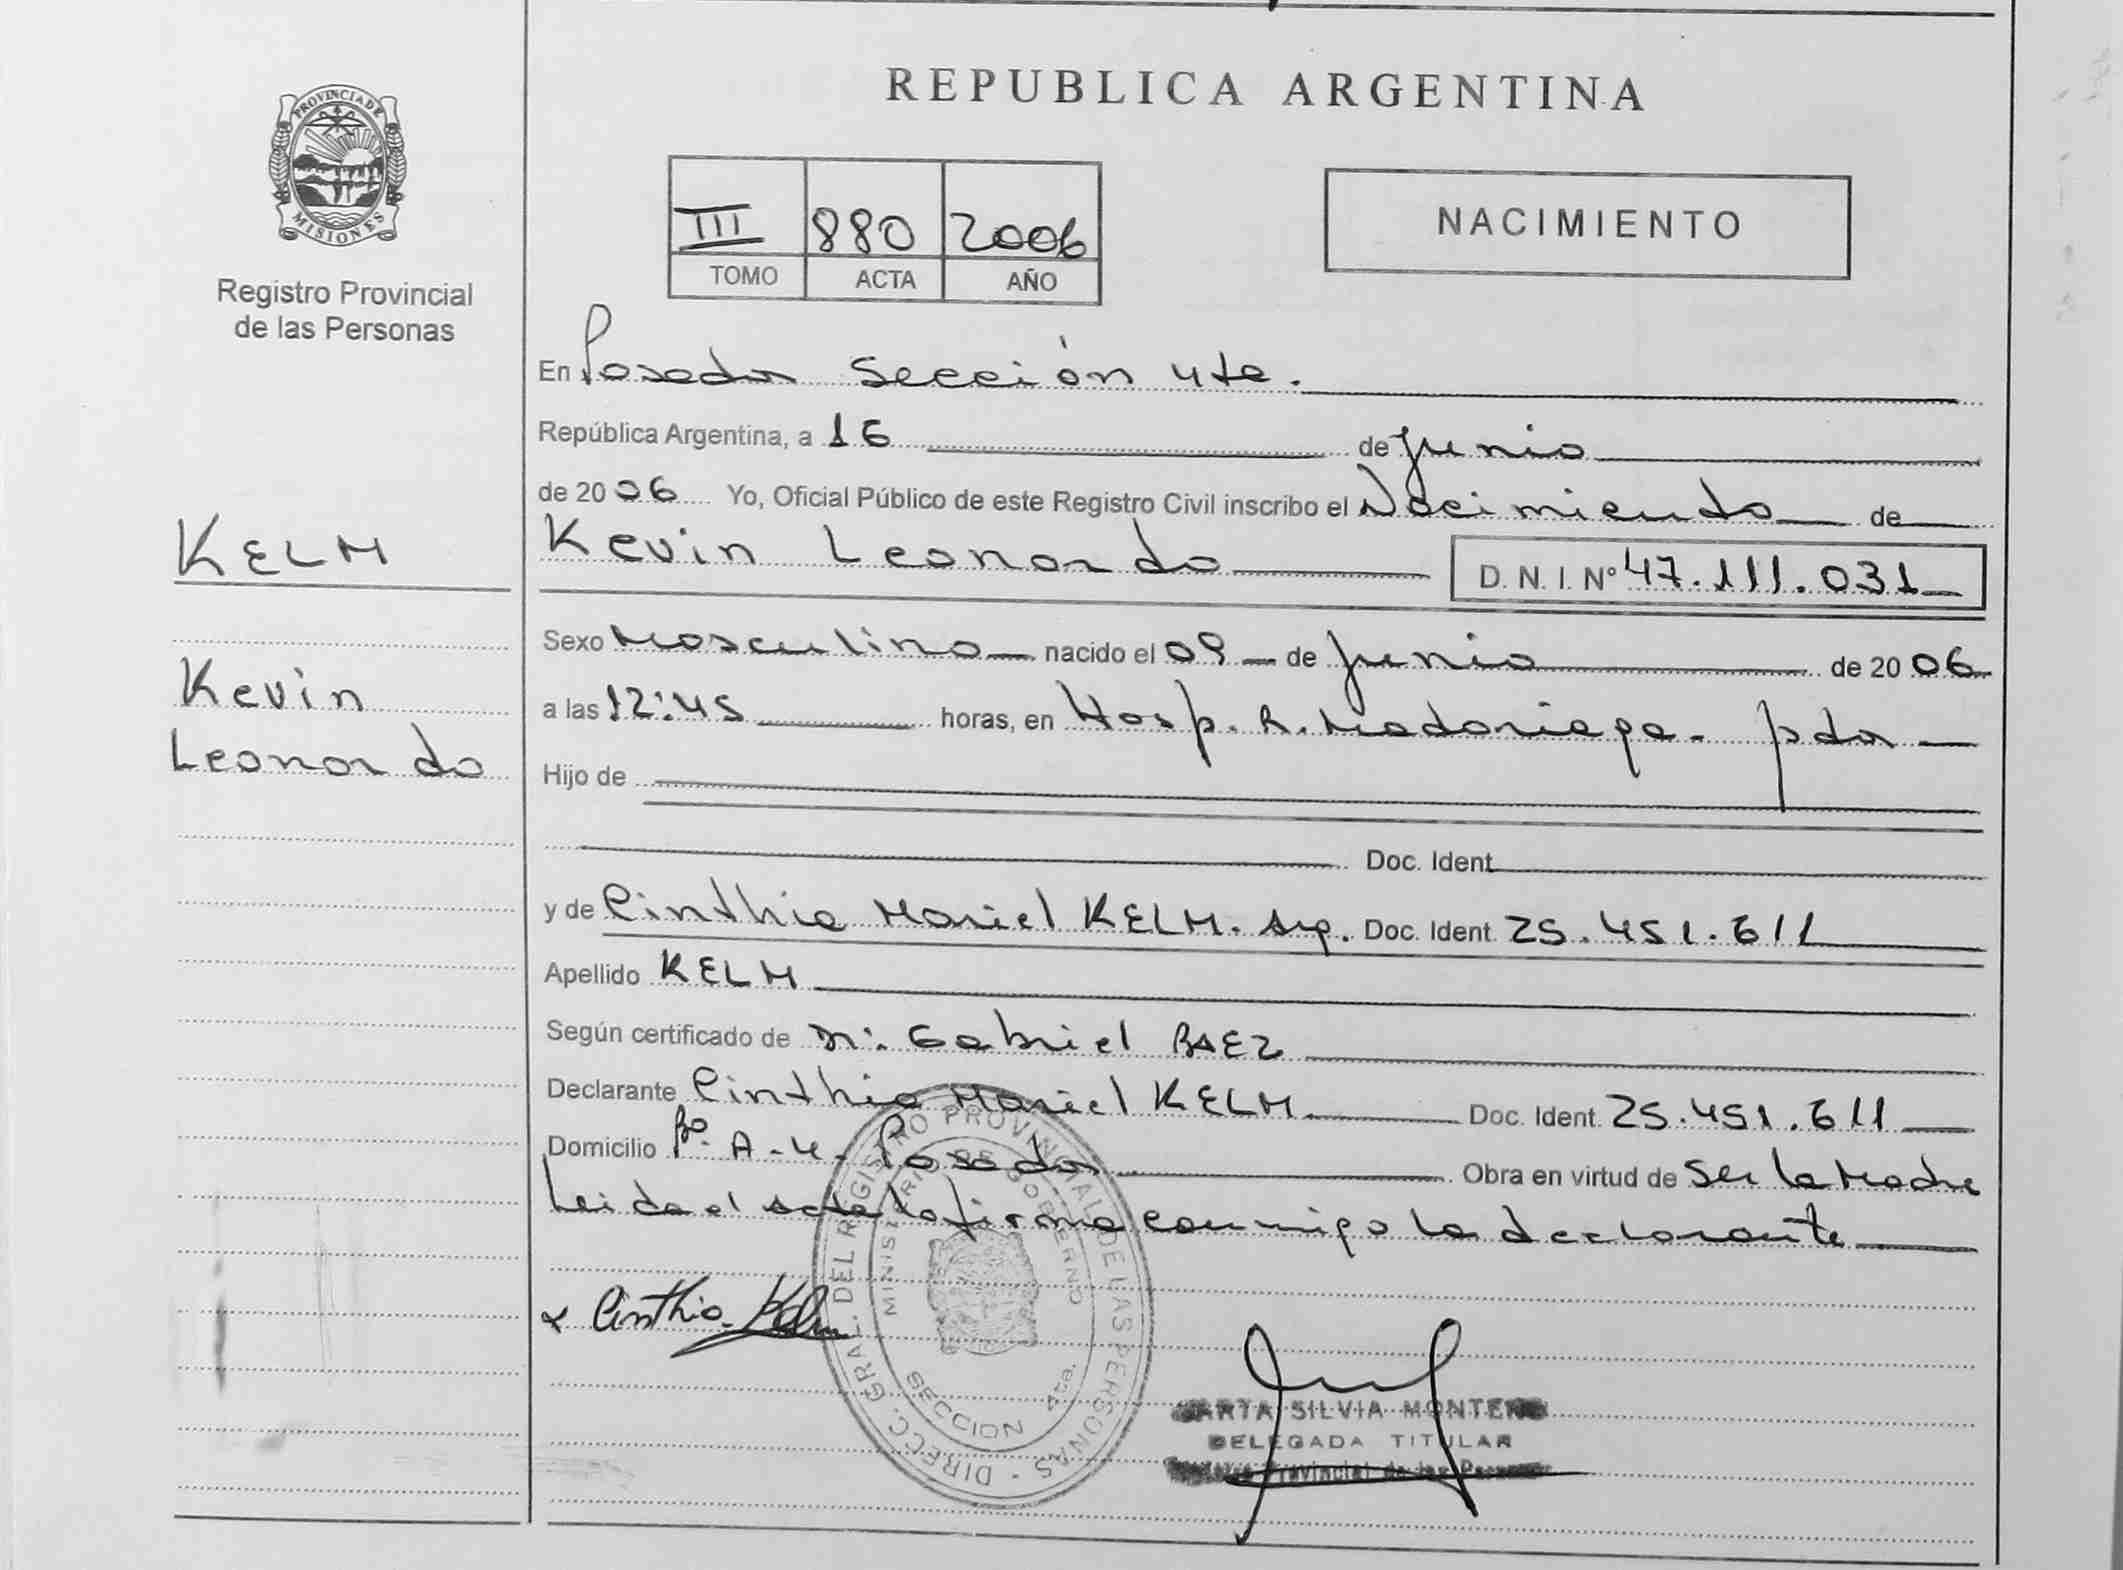 PROVINCIA DE
MISIONES
Registro Provincial
de las Personas
KELM
Kevin
Leonardo
REPUBLICA ARGENTINA
III 880 2006
TOMO ACTA AÑO
NACIMIENTO
En Posadas Sección 4ta.
República Argentina, a 16 de Junio
de 2006 Yo, Oficial Público de este Registro Civil inscribo el Nacimiento de
Kevin Leonardo D. N. I. Nº 47.111.031
Sexo Masculino nacido el 09 de Junio de 2006
a las 12:45 horas, en Hosp. R. Madariaga. pdas
Hijo de
Doc. Ident.
y de Cinthia Mariel KELM. Arg. Doc. Ident. 25.451.611
Apellido KELM
Según certificado de Gabriel BAEZ
Declarante Cinthia Mariel KELM. Doc. Ident. 25.451.611
Domicilio Bº. A-4. Posadas Obra en virtud de Ser la Madre
Leida el acta la firma conmigo la declarante
x Cinthia Kelm
DIRECC. GRAL. DEL REGISTRO PROVINCIAL DE LAS PERSONAS
MINISTERIO DE GOBIERNO
SECCION 4ta.
MARTA SILVIA MONTERO
DELEGADA TITULAR
Registro Provincial de las Personas